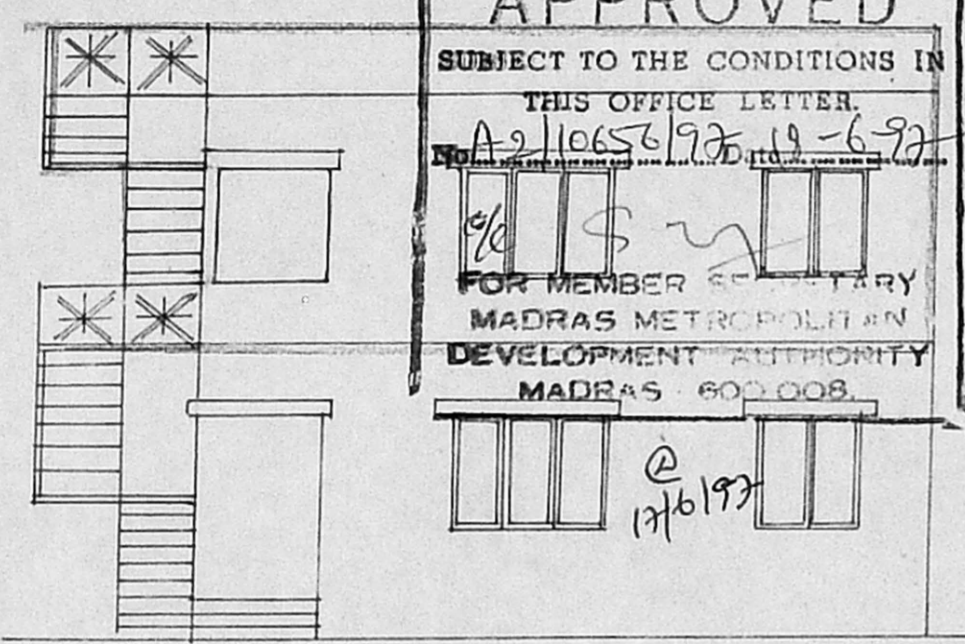 APPROVED
SUBJECT TO THE CONDITIONS IN
THIS OFFICE LETTER.
No. A2/10656/97 Date 19-6-97
FOR MEMBER SECRETARY
MADRAS METROPOLITAN
DEVELOPMENT AUTHORITY
MADRAS 600 008.
17/6/97